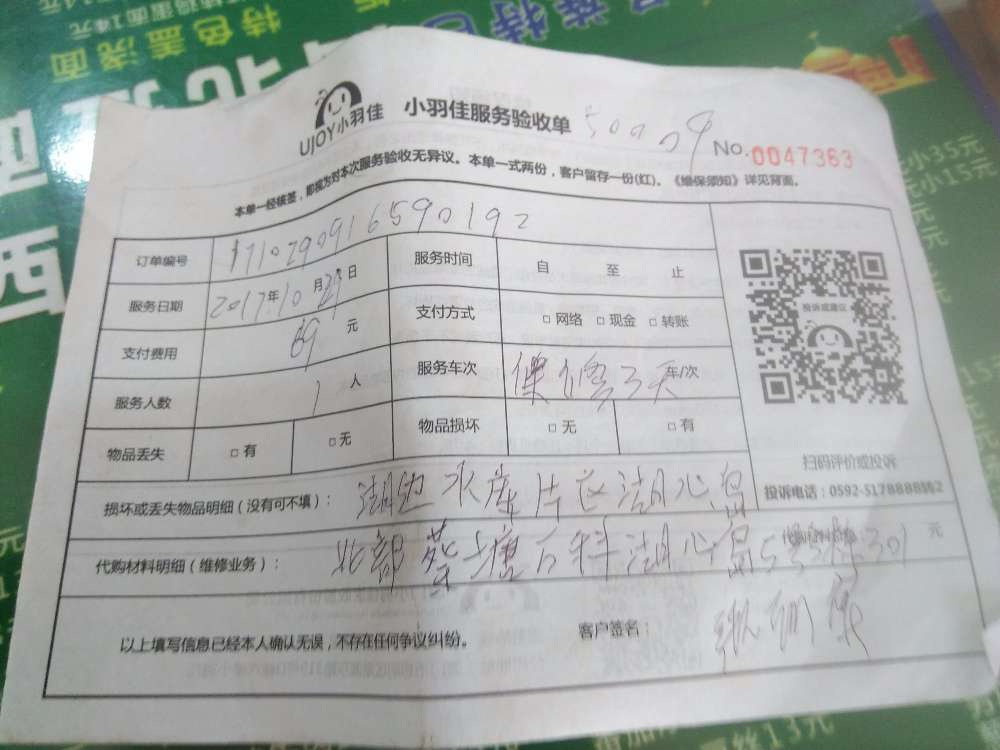 特色盖浇面
UJOY小羽佳 小羽佳服务验收单
No.0047363
本单一经核签，即视为对本次服务验收无异议。本单一式两份，客户留存一份(红)。《维保须知》详见背面。
订单编号 1710290916590192 服务时间 自 至 止
服务日期 2017年10月29日 支付方式 □网络 □现金 □转账
支付费用 元
服务人数 1人 服务车次 保修3天 车/次
物品丢失 □有 □无 物品损坏 □无 □有
投诉或建议
扫码评价或投诉
投诉电话：0592-5178888转2
损坏或丢失物品明细（没有可不填）： 湖边水库片区湖心岛
代购材料明细（维修业务）： 北部蔡塘 湖心岛 301 元
以上填写信息已经本人确认无误，不存在任何争议纠纷。 客户签名：
小35元
小15元
13元